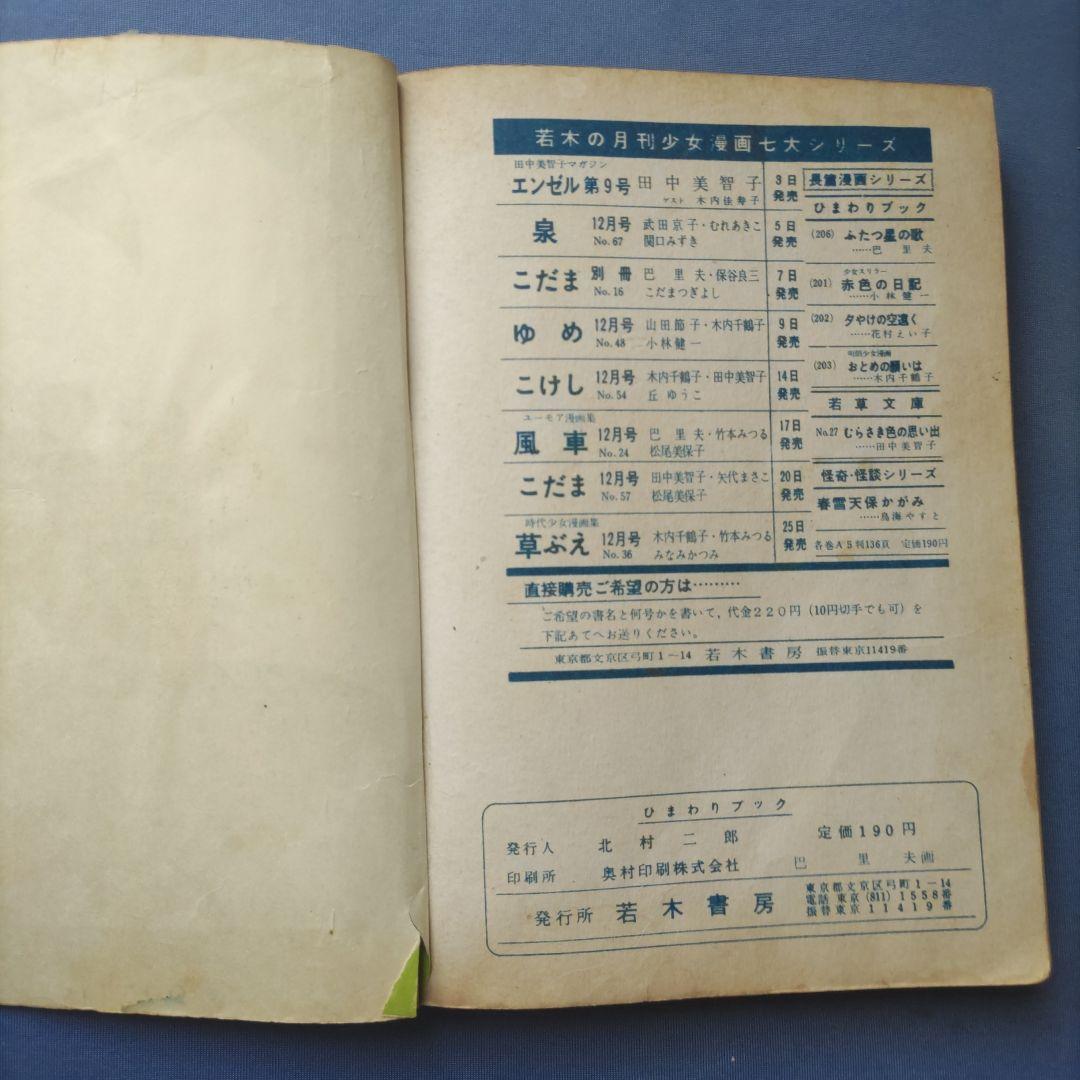 若木の月刊少女漫画七大シリーズ
田中美智子マガジン
エンゼル第9号 田中美智子 3日
ゲスト 木内佳寿子 発売
泉 12月号 武田京子・むれあきこ 5日
No.67 関口みずき 発売
こだま 別冊 巴里夫・保谷良三 7日
No.16 こだまつぎよし 発売
ゆめ 12月号 山田節子・木内千鶴子 9日
No.48 小林健一 発売
こけし 12月号 木内千鶴子・田中美智子 14日
No.54 丘ゆうこ 発売
ユーモア漫画集
風車 12月号 巴里夫・竹本みつる 17日
No.24 松尾美保子 発売
こだま 12月号 田中美智子・矢代まさこ 20日
No.57 松尾美保子 発売
時代少女漫画集
草ぶえ 12月号 木内千鶴子・竹本みつる 25日
No.36 みなみかつみ 発売
長篇漫画シリーズ
ひまわりブック
(206) ふたつ星の歌
……巴里夫
少女スリラー
(201) 赤色の日記
……小林健一
(202) 夕やけの空遠く
……花村えい子
明朗少女漫画
(203) おとめの願いは
……木内千鶴子
若草文庫
No.27 むらさき色の思い出
……田中美智子
怪奇・怪談シリーズ
春雪天保かがみ
……鳥海やすと
各巻A5判136頁 定価190円
直接購売ご希望の方は………
ご希望の書名と何号かを書いて，代金220円（10円切手でも可）を
下記あてへお送りください。
東京都文京区弓町1〜14 若木書房 振替東京11419番
ひまわりブック
発行人 北村二郎 定価190円
印刷所 奥村印刷株式会社 巴里夫画
発行所 若木書房
東京都文京区弓町1―14
電話 東京(811)1558番
振替東京11419番